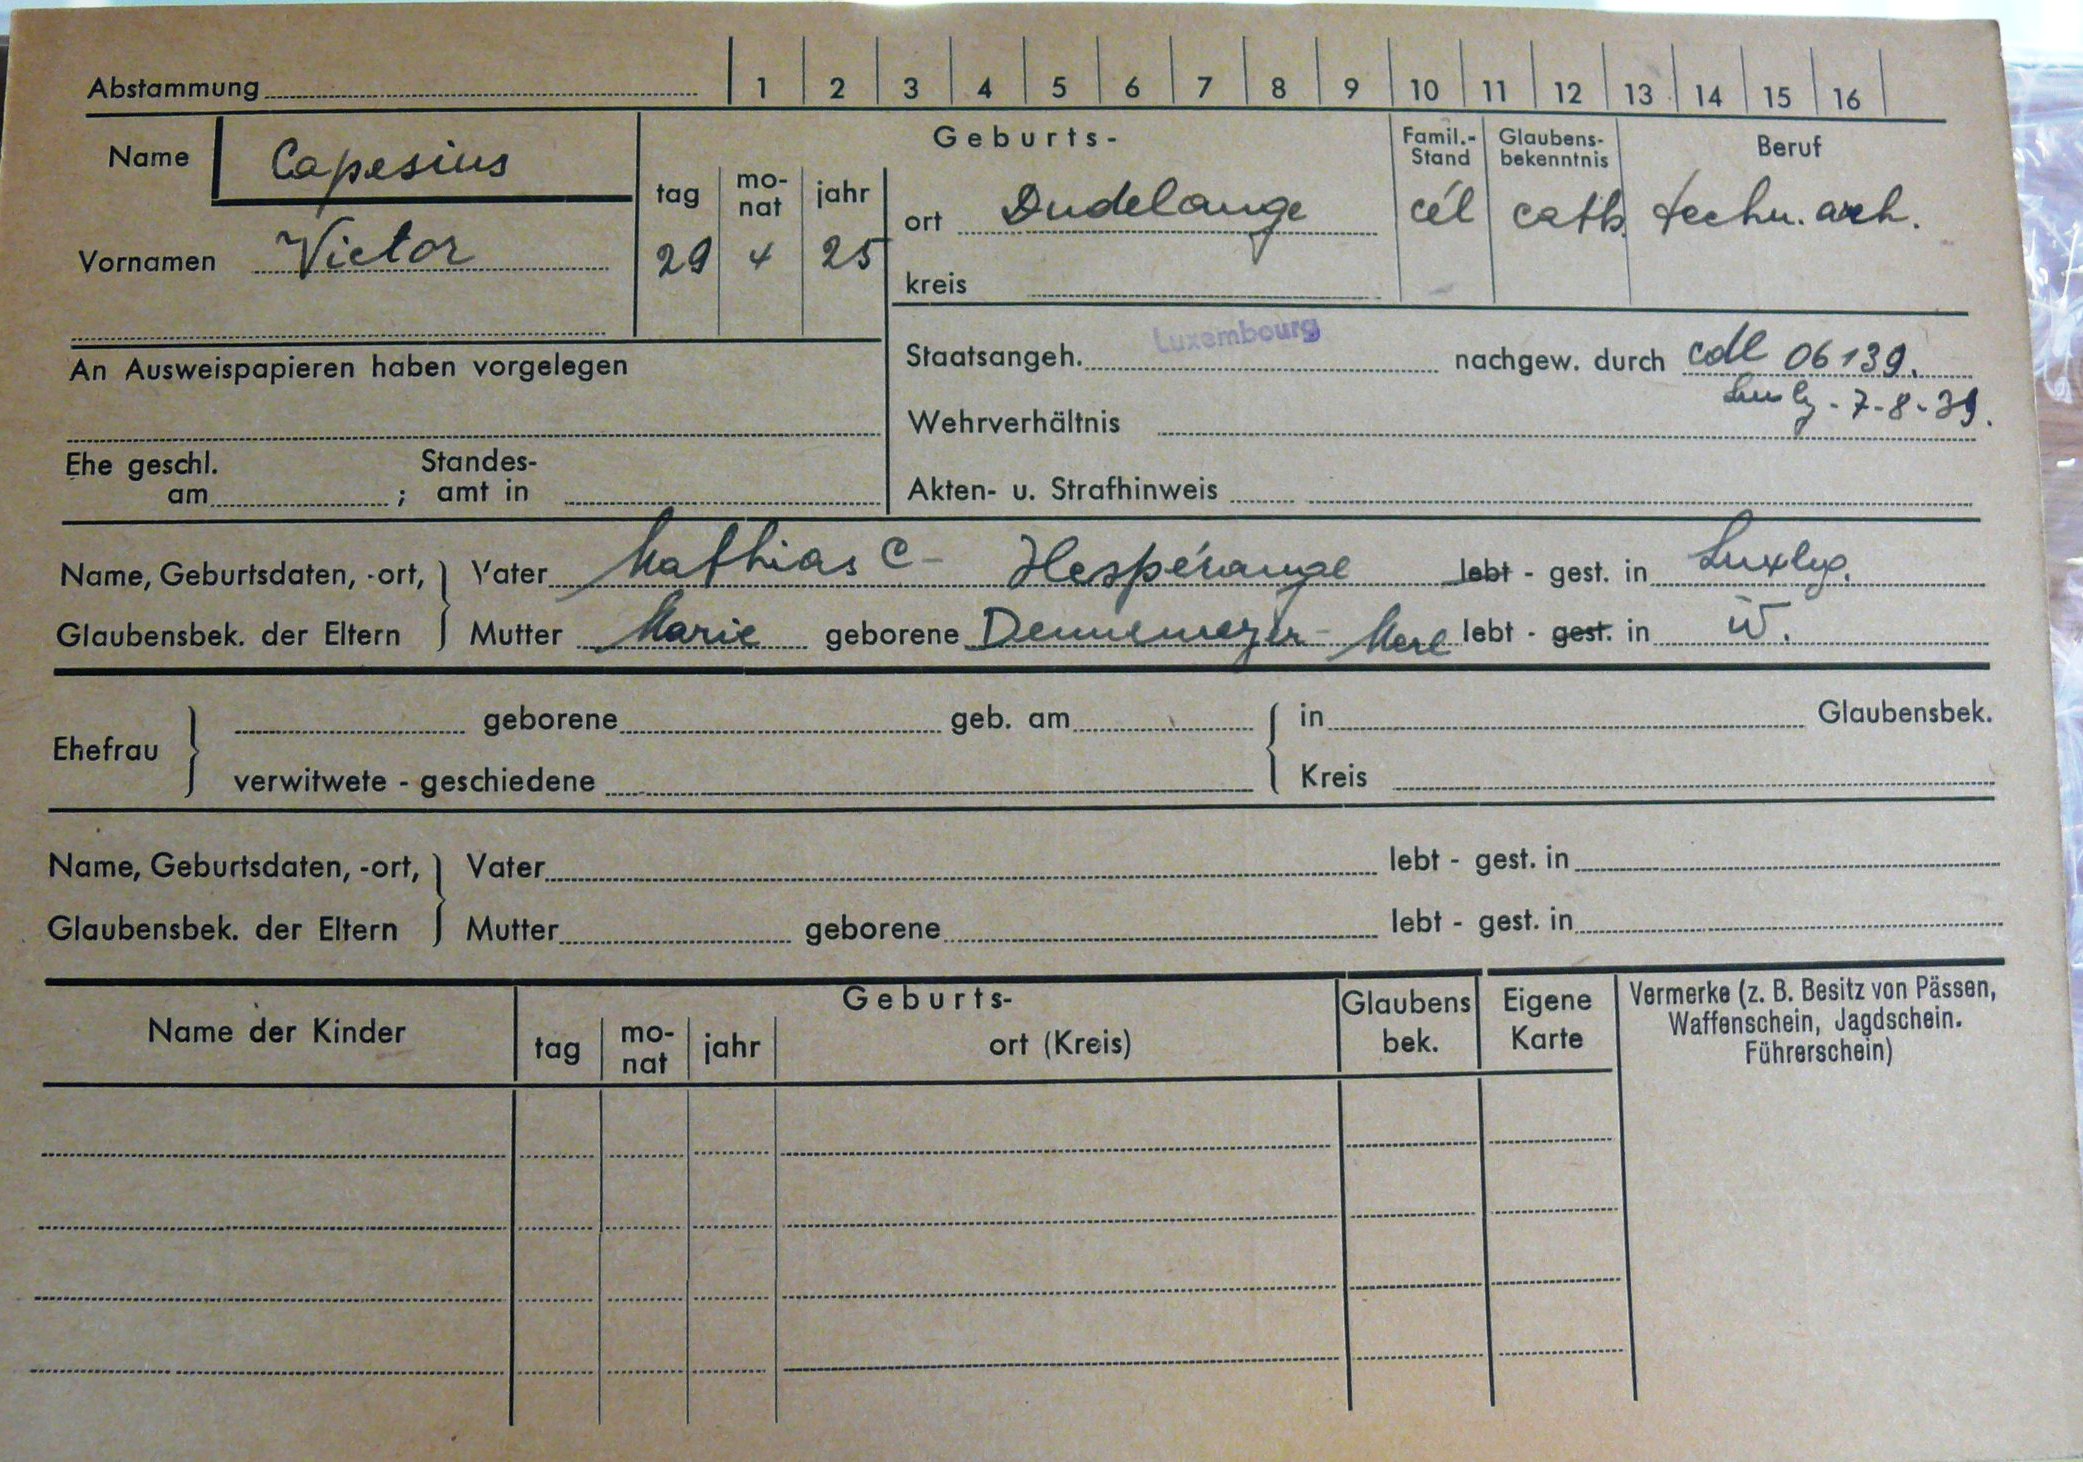 Abstammung 1 2 3 4 5 6 7 8 9 10 11 12 13 14 15 16
Name Capesius
Vornamen Victor
Geburts-
tag mo-nat jahr
29 4 25
ort Dudelange
kreis
Famil.-
Stand
cél
Glaubens-
bekenntnis
cath.
Beruf
techn. arch.
An Ausweispapieren haben vorgelegen
Ehe geschl.
am ; Standes-
amt in
Staatsangeh. Luxembourg nachgew. durch cdl 06139.
7-8-39.
Wehrverhältnis
Akten- u. Strafhinweis
Name, Geburtsdaten, -ort, Vater Mathias C - Hespérange lebt - gest. in Luxbg.
Glaubensbek. der Eltern Mutter Marie geborene Dennemeyer - Merl lebt - gest. in W.
Ehefrau
geborene geb. am in Glaubensbek.
verwitwete - geschiedene Kreis
Name, Geburtsdaten, -ort, Vater lebt - gest. in
Glaubensbek. der Eltern Mutter geborene lebt - gest. in
Name der Kinder
Geburts-
tag mo-nat jahr ort (Kreis)
Glaubens
bek.
Eigene
Karte
Vermerke (z. B. Besitz von Pässen,
Waffenschein, Jagdschein.
Führerschein)